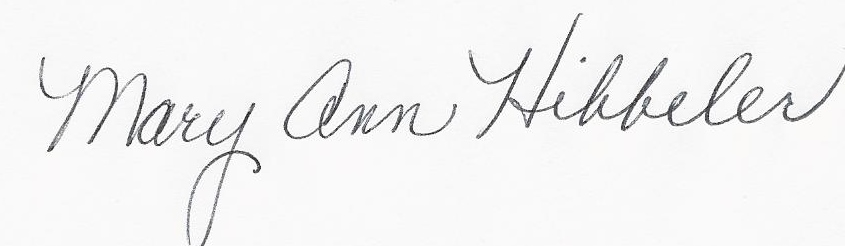 Mary Ann Hibbeler